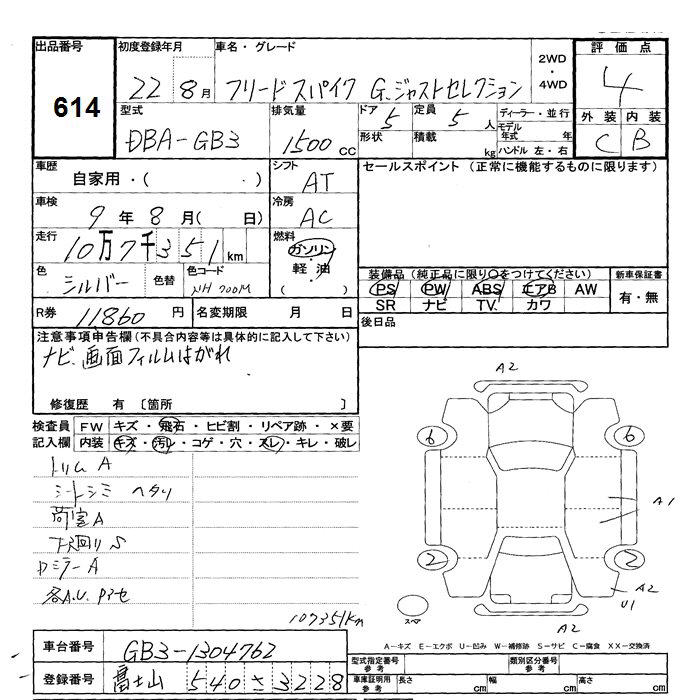 出品番号 初度登録年月 車名・グレード 評価点
614
22 8月 フリードスパイク G.ジャストセレクション 2WD・4WD 4
型式 排気量 ドア 定員 ディーラー・並行 外装 内装
DBA-GB3 1500cc 5 5人 モデル年式 年 C B
形状 積載 kg ハンドル 左・右
車歴 シフト セールスポイント (正常に機能するものに限ります)
自家用・( ・ ) AT
車検 冷房
9年8月( 日) AC
走行 燃料
10万7千351km ガソリン・軽油 ( )
色 色替 色コード 装備品(純正品に限り○をつけてください) 新車保証書
シルバー NH700M PS PW ABS エアB AW 有・無
SR ナビ TV. カワ
R券 11860円 名変期限 月 日 後日品
注意事項申告欄(不具合内容等は具体的に記入して下さい)
ナビ.画面フィルムはがれ
修復歴 有 〔箇所 〕
検査員 FW キズ・飛石・ヒビ割・リペア跡・×要
記入欄 内装 キズ・汚レ・コゲ・穴・スレ・キレ・破レ
トリム A
シートシミ ヘタリ
荷室A
下回り S
ロミラーA
各A.U.
107351km
A2
6 6
A1
2 2
A2
U1
スペア
A2
A-キズ E-エクボ U-凹み W-補修跡 S-サビ C-腐食 XX-交換済
車台番号 GB3-1304762
型式指定番号 参考 類別区分番号 参考
登録番号 富士山 540 さ 3228
車庫証明用 参考 長さ cm 幅 cm 高さ cm